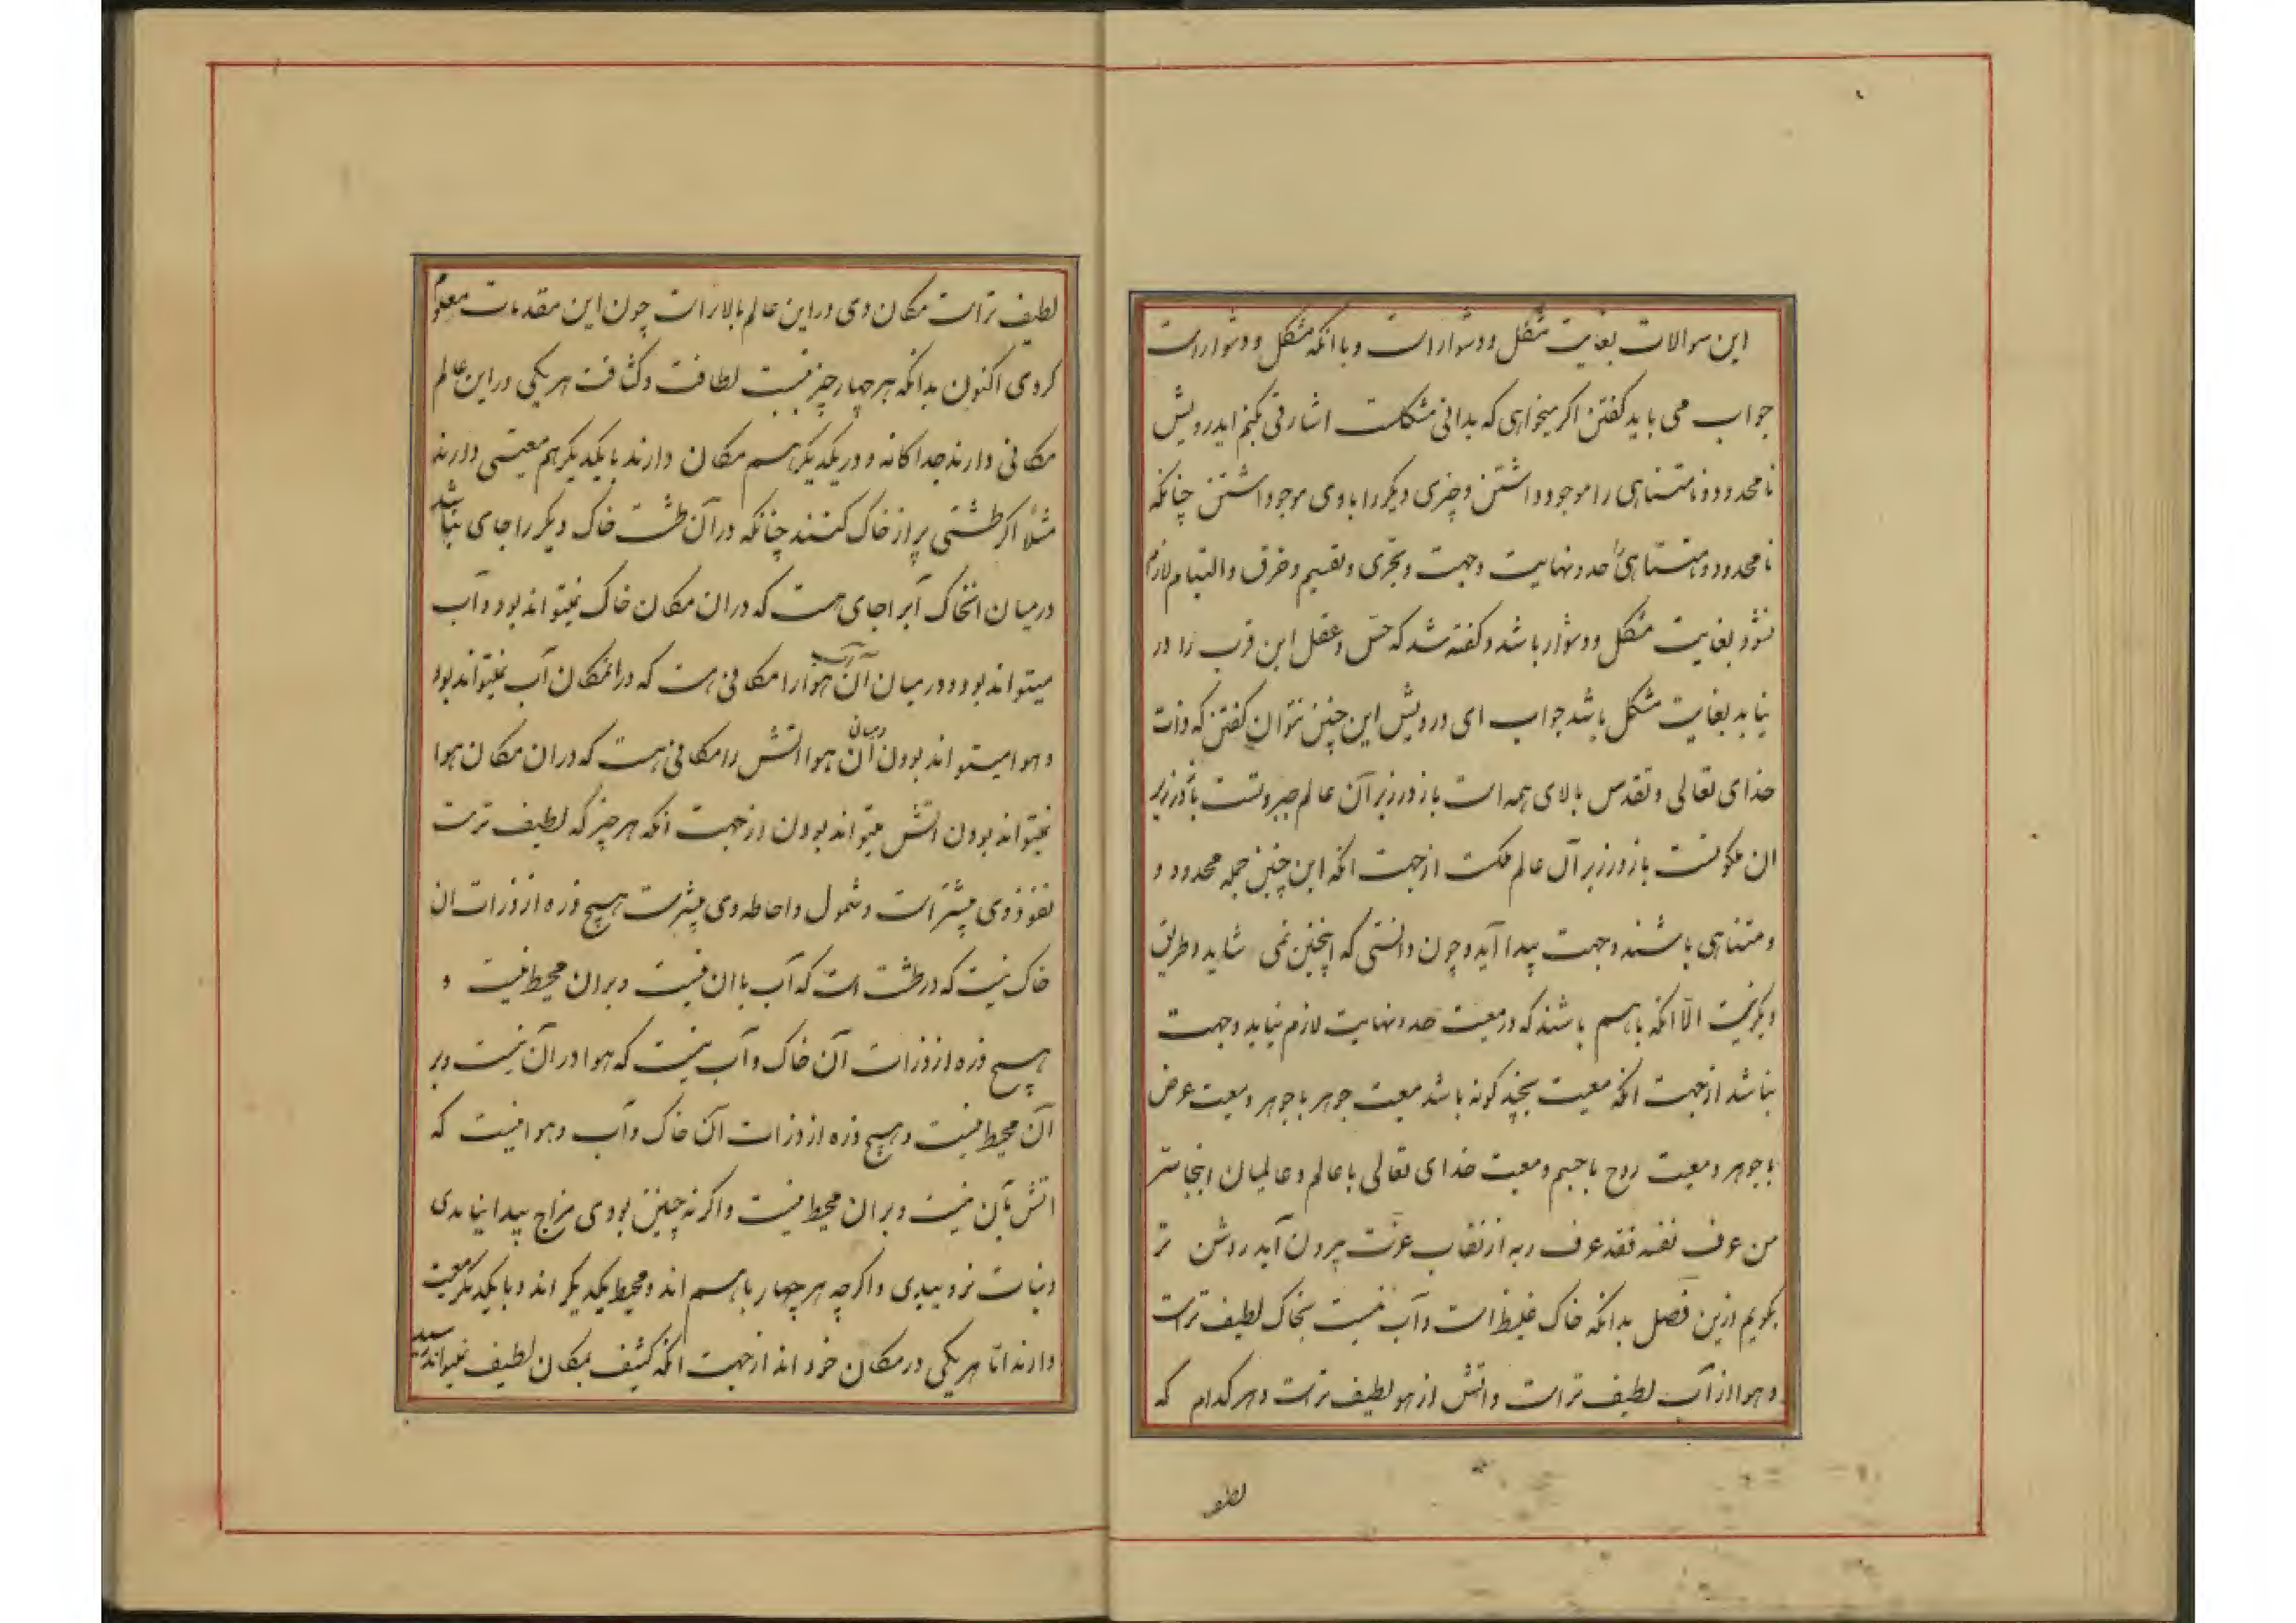 این سوالات بغایت مشکل و دشوار است و با انکه مشکل و دشوار است
جواب می باید کفتن اکر میخواهی که بدانی مشکلست اشارتی بکنم ایدرویش
نامحدود و نامتناهی را موجود داشتن و چیزی دیکر را با وی موجود داشتن چنانکه
نامحدود و نامتناهی را حد و نهایت وجهت و تجزی و تقسیم و خرق و التیام لازم
نشود بغایت مشکل و دشوار باشد و کفته شد که حس و عقل این قرب را در
نیابد بغایت مشکل باشد جواب ای درویش این چنین نتوان کفتن که ذات
خدای تعالی و تقدس بالای همه است باز در زیر آن عالم جبروتست باز در زیر
ان ملکوتست باز در زیر آن عالم ملکست از جهت انکه این چنین جمله محدود و
و متناهی باشند وجهت پیدا آید و چون دانستی که اینچنین نمی شاید و طریق
دیکر نیست الّا انکه با هم باشند که در معیت حد و نهایت لازم نیاید وجهت
نباشد از جهت انکه معیت بچند کونه باشد معیت جوهر با جوهر و معیت عرض
با جوهر و معیت روح با جسم و معیت خدای تعالی با عالم و عالمیان اینجا سّر
من عرف نفسه فقد عرف ربه از نقاب عزت بیرون آید روشن تر
بکویم ازین فصل بدانکه خاک غلیظ است و آب نسبت بخاک لطیف تراست
و هوا از آب لطیف تر است و اتش از هو لطیف تراست و هر کدام که
لطیف
لطیف تراست مکان وی در این عالم بالاتر است چون این مقدمات معلوم
کردی اکنون بدانکه هر چهار چیز نسبت لطافت و کثافت هر یکی در این عالم
مکانی دارند جداکانه و در یکدیکر هم مکان دارند با یکدیکر هم معیتی دارند
مثلًا اکر طشتی پر از خاک کنند چنانکه در آن طشت خاک دیکر را جای نباشد
در میان انخاک آبرا جای هست که در ان مکان خاک نمیتواند بود و آب
میتواند بود و در میان آن آب هوا را مکانی هست که در انمکان آب نمیتواند بود
و هوا میتواند بودن درمیان آن هوا اتش را مکانی هست که در ان مکان هوا
نمیتواند بودن اتش میتواند بودن از جهت انکه هر چیز که لطیف تر است
نفوذ وی بیشتر است و شمول و احاطه وی بیشتر است هیچ ذره از ذرات ان
خاک نیست که در طشت است که آب با ان نیست و بر ان محیط نیست و
هیچ ذره از ذرات آن خاک و آب نیست که هوا در آن نیست و بر
آن محیط نیست و هیچ ذره از ذرات آن خاک و آب و هوا نیست که
اتش بآن نیست و بر ان محیط نیست و اکر نه چنین بودی مزاج پیدا نیامدی
و نبات نروییدی و اکر چه هر چهار با هم اند و محیط یکدیکر اند و با یکدیکر معیت
دارند امّا هر یکی در مکان خود اند از جهت انکه کثیف بمکان لطیف نمیتواند رسید